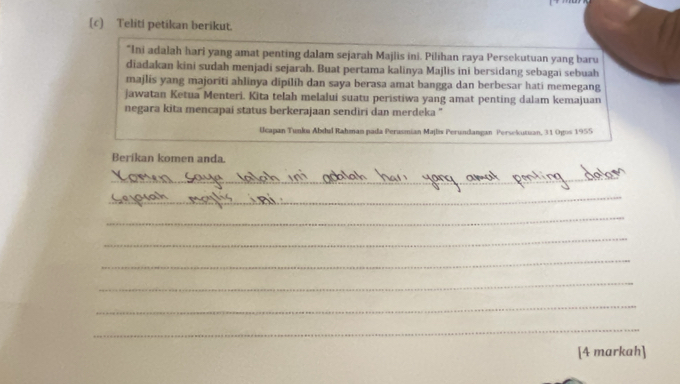 (c) Teliti petikan berikut.
"Ini adalah hari yang amat penting dalam sejarah Majlis ini. Pilihan raya Persekutuan yang baru
diadakan kini sudah menjadi sejarah. Buat pertama kalinya Majlis ini bersidang sebagai sebuah
majlis yang majoriti ahlinya dipilih dan saya berasa amat bangga dan berbesar hati memegang
jawatan Ketua Menteri. Kita telah melalui suatu peristiwa yang amat penting dalam kemajuan
negara kita mencapai status berkerajaan sendiri dan merdeka "
Ucapan Tunku Abdul Rahman pada Perasmian Majlis Perundangan Persekutuan, 31 Ogos 1955
Berikan komen anda.
Komen saya ialah ini adalah hari yang amat penting dalam
sejarah majlis ini.
[4 markah]